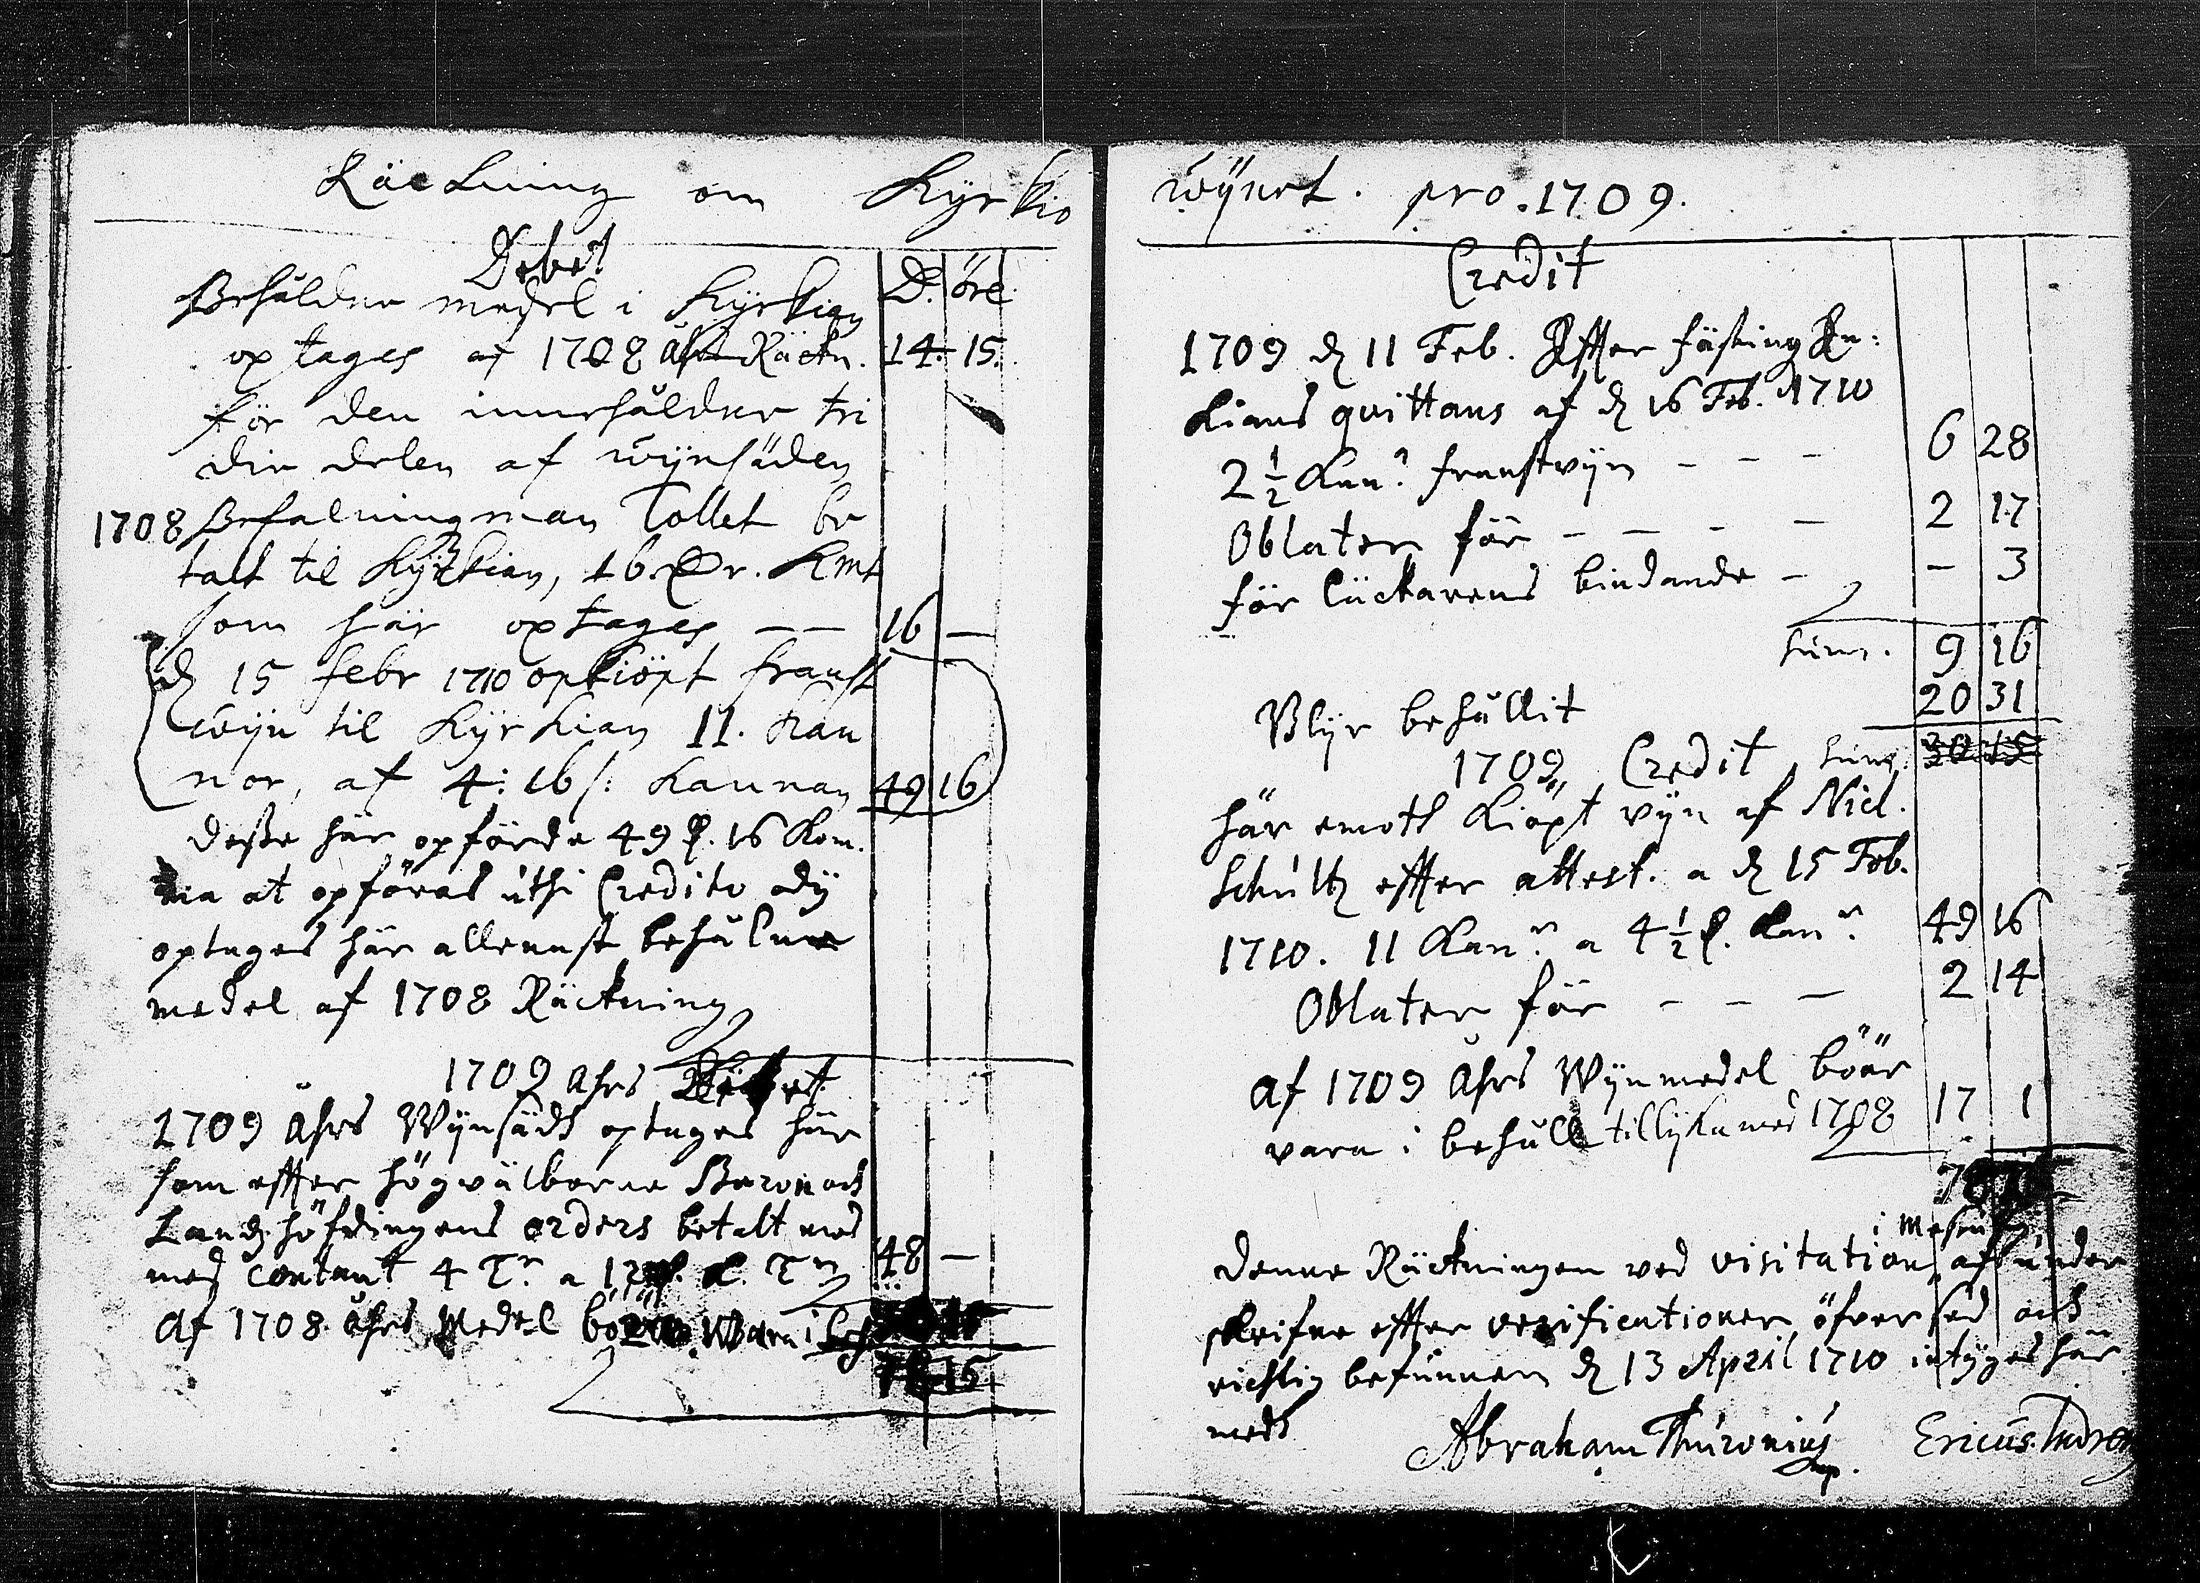 Räckning om Kyrkio
Debet
D. öre
Behåldne medel i Kyrkian
optages af 1708 åhrs Räckn. 14. 15.
för den innehåldne tri
die delen af wijnsäden
1708 Befalningman Tollet be
talt til Kyrkian, 16 Dr. Kmt
som här optages — — 16 —
d. 15 febr 1710 opkiöpt franst
wijn til Kyrkian 11. Kan
nor, af 4: 16 s: Kannan 49 16
desse här opförde 49 d. 16 Kom.
ma at opföras uthi Credito ody
optages här allenast behålne
medel af 1708 Räckning
1709 åhrs Debet
1709 åhrs Wijnsädh optages här
som effter högwälborne Baron och
Landzhöfdingens orders betalt med
med contant 4 Tr. a 12 d. Tn 48 —
af 1708 åhrs Medel böör wara i
15
wijnet. pro. 1709.
Credit
1709 d. 11 Feb. Effter fästing En:
kians quittans af d. 16 Feb. 1710
2 1/2 Kann. franstvijn — — — 6 28
Oblater för — — — — 2 17
för lückarens bindande — — 3
sum. 9 16
Blyr behållit 20 31
1709 Credit sum. 30 15
här emoth kiöpt vijn af Nicl.
Schultz effter attest. a d. 15 Feb.
1710. 11 Kan.r a 4 1/2 d. Kan.n 49 16
Oblater för — — — 2 14
af 1709 åhrs Wijnmedel böär
vara i behåll tillijka med 1708 17 1
denne Räckningen ved visitation af under
skrifne effter verificationer öfversed och
richtig befunnen d. 13 April 1710 intyges här
medh Abraham Thuronius mp. Ericus